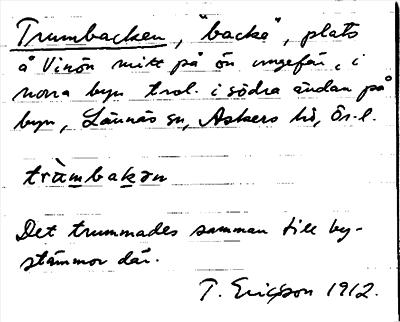 Trumbacken, "backe", plats
å Vinön mitt på ön ungefär, i
norra byn trol. i södra ändan på
byn, Lännäs sn, Askers hd, Ör. l.
tràmbakən
Det trummades samman till by-
stämmor där.
T. Ericsson 1912.